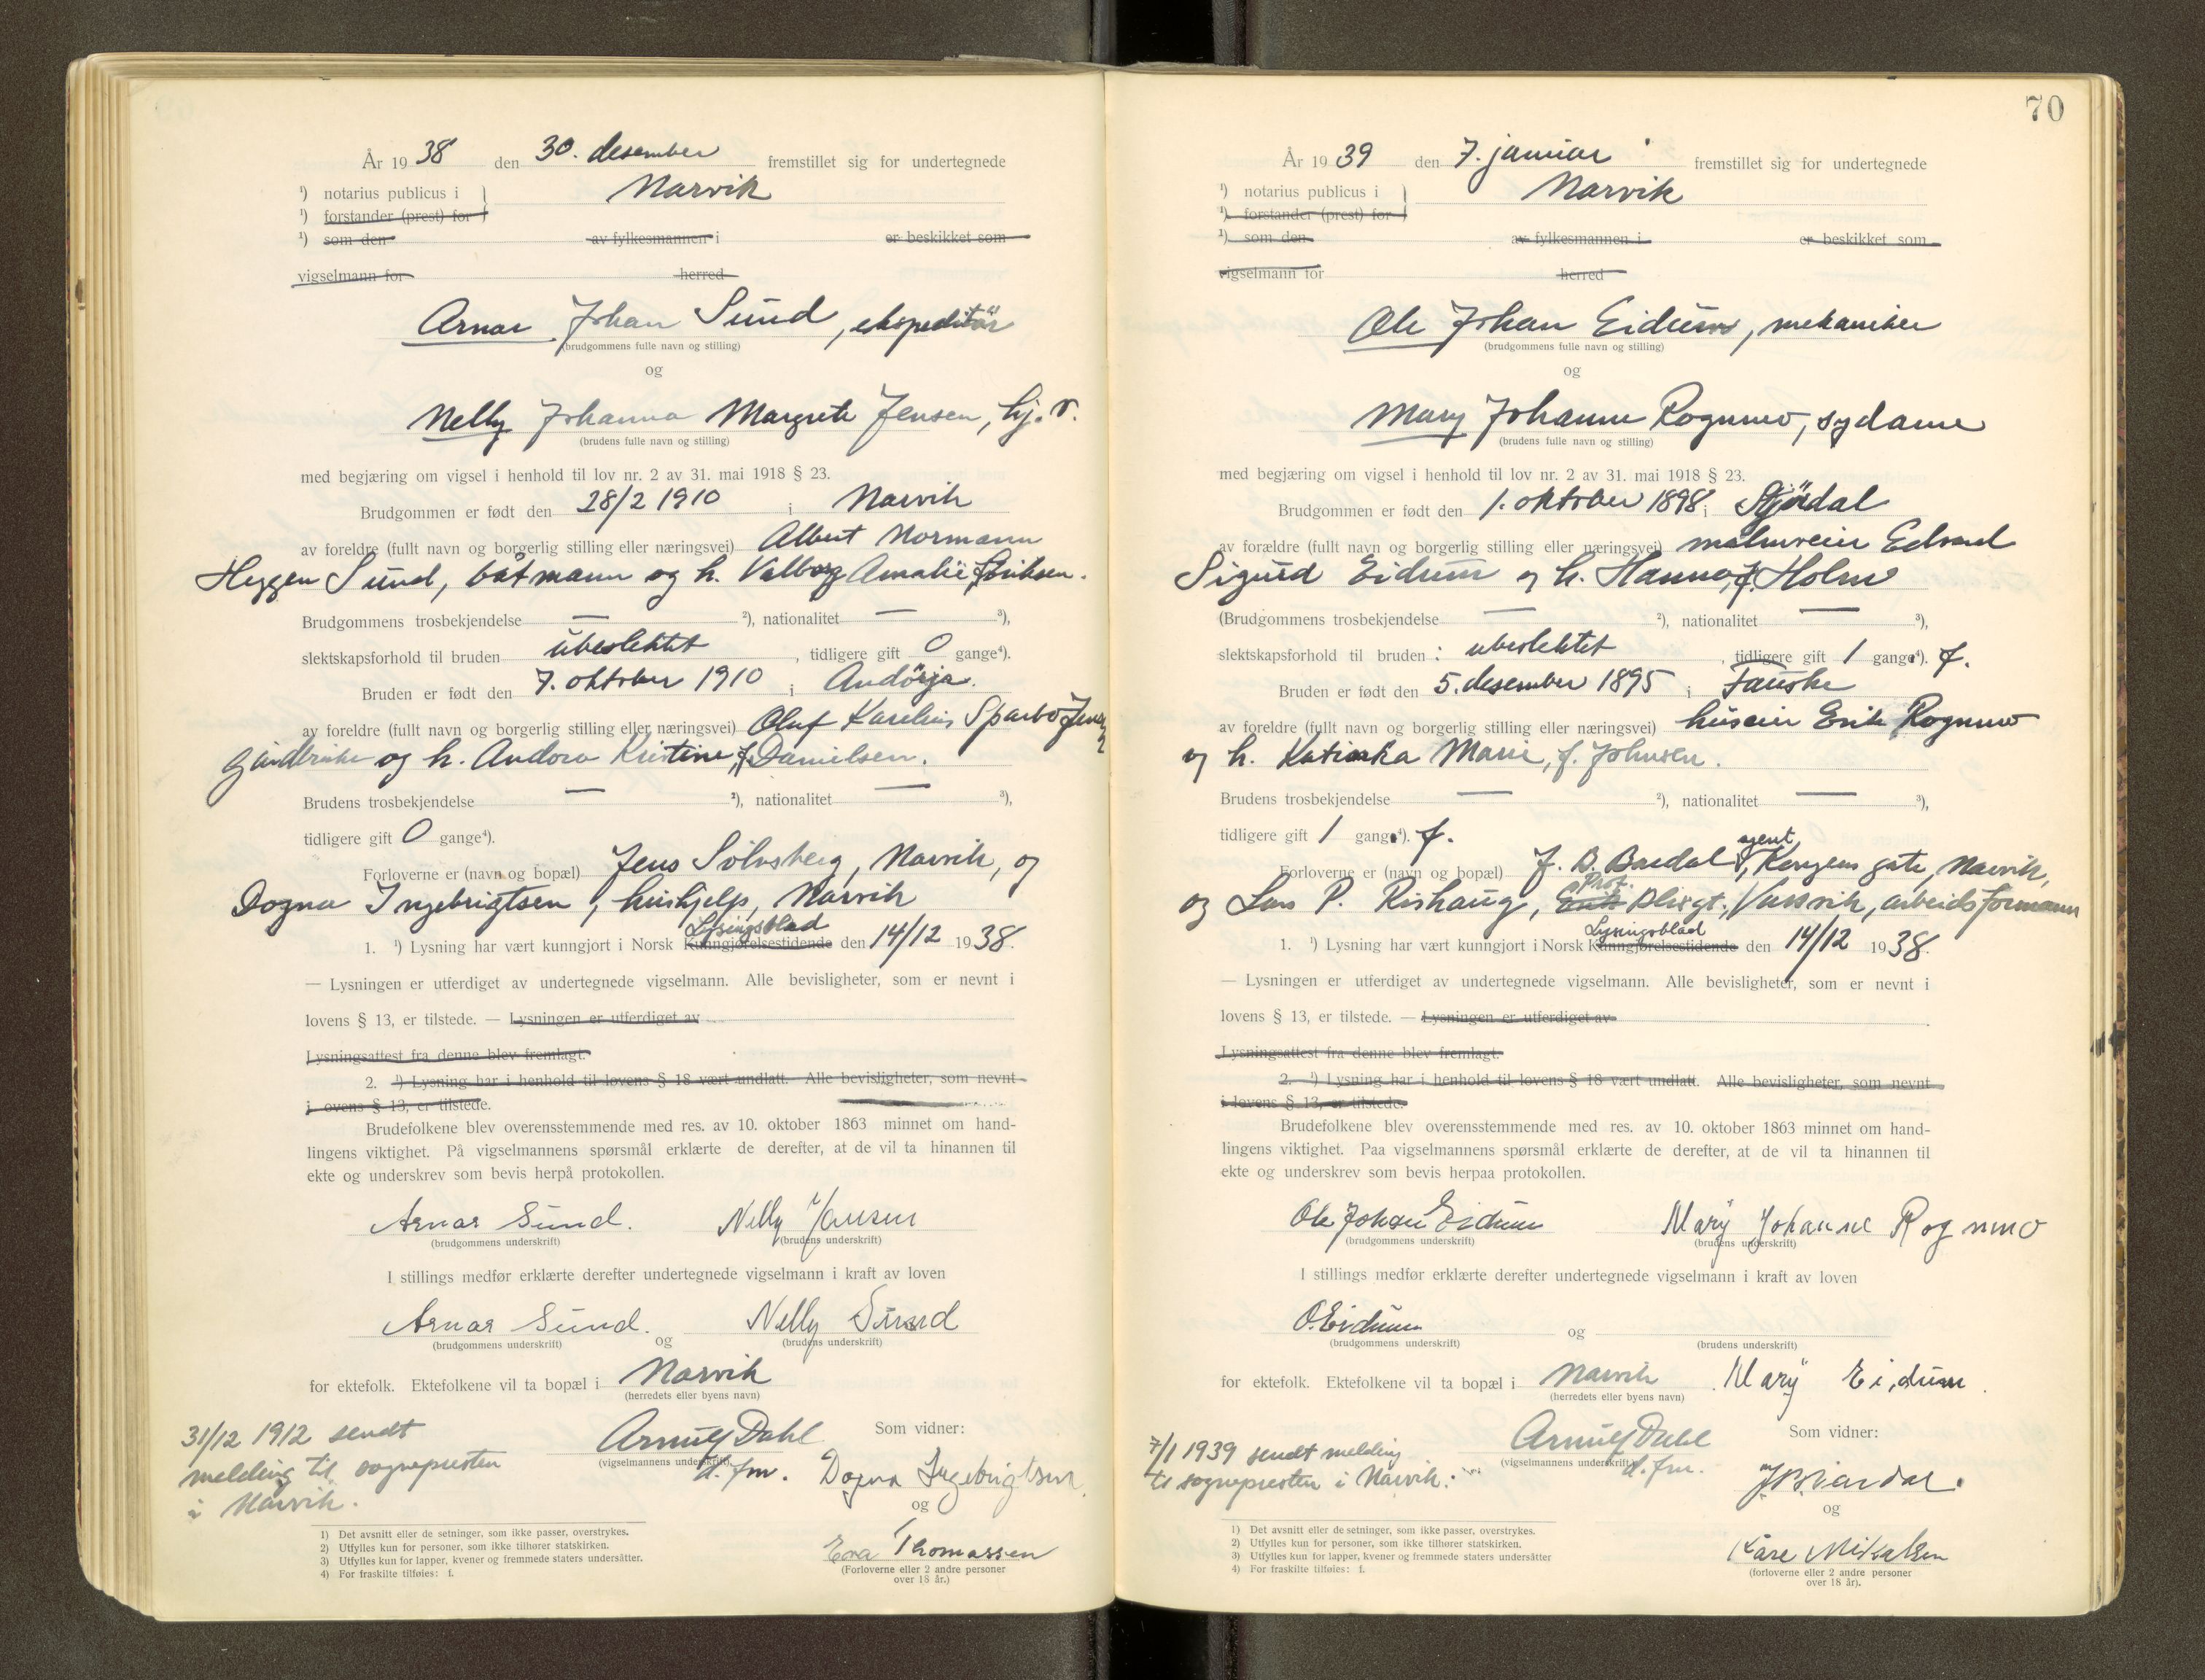 År 1938 den 30. desember fremstillet sig for undertegnede
¹) notarius publicus i } Narvik
¹) forstander (prest) for
¹) som den av fylkesmannen i er beskikket som
vigselmann for herred
Arnar Johan Sund, ekspeditör
(brudgommens fulle navn og stilling)
og
Nelly Johanna Margrete Jensen, hj. v.
(brudens fulle navn og stilling)
med begjæring om vigsel i henhold til lov nr. 2 av 31. mai 1918 § 23.
Brudgommen er født den 28/2 1910 i Narvik
av foreldre (fullt navn og borgerlig stilling eller næringsvei) Albert Normann
Heggen Sund, båtmann og h. Valborg Amalie f. Eriksen.
Brudgommens trosbekjendelse — ²), nationalitet — ³),
slektskapsforhold til bruden ubeslektet, tidligere gift 0 gange⁴).
Bruden er født den 7. oktober 1910 i Andörja.
av foreldre (fullt navn og borgerlig stilling eller næringsvei) Oluf Karelius Sparbo Jensen
gårdbruker og h. Andora Kristine, f. Danielsen.
Brudens trosbekjendelse — ²), nationalitet — ³),
tidligere gift 0 gange⁴).
Forloverne er (navn og bopæl) Jens Solvsberg, Narvik, og
Dogna Ingebrigtsen, hushjelp, Narvik
Lysingsblad
1. ¹) Lysning har vært kunngjort i Norsk Kunngjørelsestidende den 14/12 1938.
— Lysningen er utferdiget av undertegnede vigselmann. Alle bevisligheter, som er nevnt i
lovens § 13, er tilstede. — Lysningen er utferdiget av
Lysningsattest fra denne blev fremlagt.
2. ¹) Lysning har i henhold til lovens § 18 vært undlatt. Alle bevisligheter, som nevnt
i lovens § 13, er tilstede.
Brudefolkene blev overensstemmende med res. av 10. oktober 1863 minnet om hand-
lingens viktighet. På vigselmannens spørsmål erklærte de derefter, at de vil ta hinannen til
ekte og underskrev som bevis herpå protokollen.
Arnar Sund. Nelly Jensen
(brudgommens underskrift) (brudens underskrift)
I stillings medfør erklærte derefter undertegnede vigselmann i kraft av loven
Arnar Sund. og Nelly Sund
(brudgommens underskrift) (brudens underskrift)
for ektefolk. Ektefolkene vil ta bopæl i Narvik
(herredets eller byens navn)
31/12 1912 sendt
melding til sognepresten
i Narvik.
Arnulf Dahl
(vigselmannens underskrift)
d. fm.
Som vidner:
Dogna Ingebrigtsen
og
Eva Thomassen
(Forloverne eller 2 andre personer
over 18 år.)
1) Det avsnitt eller de setninger, som ikke passer, overstrykes.
2) Utfylles kun for personer, som ikke tilhører statskirken.
3) Utfylles kun for lapper, kvener og fremmede staters undersåtter.
4) For fraskilte tilføies: f.
70
År 1939 den 7. januar fremstillet sig for undertegnede
¹) notarius publicus i } Narvik
¹) forstander (prest) for
¹) som den av fylkesmannen i er beskikket som
vigselmann for herred
Ole Johan Eidum, mekaniker
(brudgommens fulle navn og stilling)
og
Mary Johanne Rognmo, sydame
(brudens fulle navn og stilling)
med begjæring om vigsel i henhold til lov nr. 2 av 31. mai 1918 § 23.
Brudgommen er født den 1. oktober 1898 i Stjördal
av forældre (fullt navn og borgerlig stilling eller næringsvei) malmveier Edvard
Sigurd Eidum og h. Hanna, f. Holm
(Brudgommens trosbekjendelse — ²), nationalitet — ³),
slektskapsforhold til bruden: ubeslektet, tidligere gift 1 gange⁴). f.
Bruden er født den 5. desember 1895 i Fauske
av foreldre (fullt navn og borgerlig stilling eller næringsvei) huseier Erik Rognmo
og h. Katinka Marie, f. Johnsen.
Brudens trosbekjendelse — ²), nationalitet — ³),
tidligere gift 1 gang⁴). f.
agent
Forloverne er (navn og bopæl) J. B. Bardal, Kongens gate, Narvik,
Prof.
og Lars P. Rishaug, Dligt., Vassvik, arbeidsformann
Lysingsblad
1. ¹) Lysning har vært kunngjort i Norsk Kunngjørelsestidende den 14/12 1938.
— Lysningen er utferdiget av undertegnede vigselmann. Alle bevisligheter, som er nevnt i
lovens § 13, er tilstede. — Lysningen er utferdiget av
Lysningsattest fra denne blev fremlagt.
2. ¹) Lysning har i henhold til lovens § 18 vært undlatt. Alle bevisligheter, som nevnt
i lovens § 13, er tilstede.
Brudefolkene blev overensstemmende med res. av 10. oktober 1863 minnet om hand-
lingens viktighet. Paa vigselmannens spørsmål erklærte de derefter, at de vil ta hinannen til
ekte og underskrev som bevis herpaa protokollen.
Ole Johan Eidum Mary Johanne Rognmo
(brudgommens underskrift) (brudens underskrift)
I stillings medfør erklærte derefter undertegnede vigselmann i kraft av loven
O. Eidum og
(brudgommens underskrift) (brudens underskrift)
for ektefolk. Ektefolkene vil ta bopæl i Narvik. Mary Eidum.
(herredets eller byens navn)
7/1 1939 sendt melding
til sognepresten i Narvik.
Arnulf Dahl
(vigselmannens underskrift)
d. fm.
Som vidner:
J. B. Bardal.
og
Kåre Mikalsen
(forloverne eller 2 andre personer
over 18 år).
1) Det avsnitt eller de setninger, som ikke passer, overstrykes.
2) Utfylles kun for personer, som ikke tilhører statskirken.
3) Utfylles kun for lapper, kvener og fremmede staters undersåtter
4) For fraskilte tilføies: f.